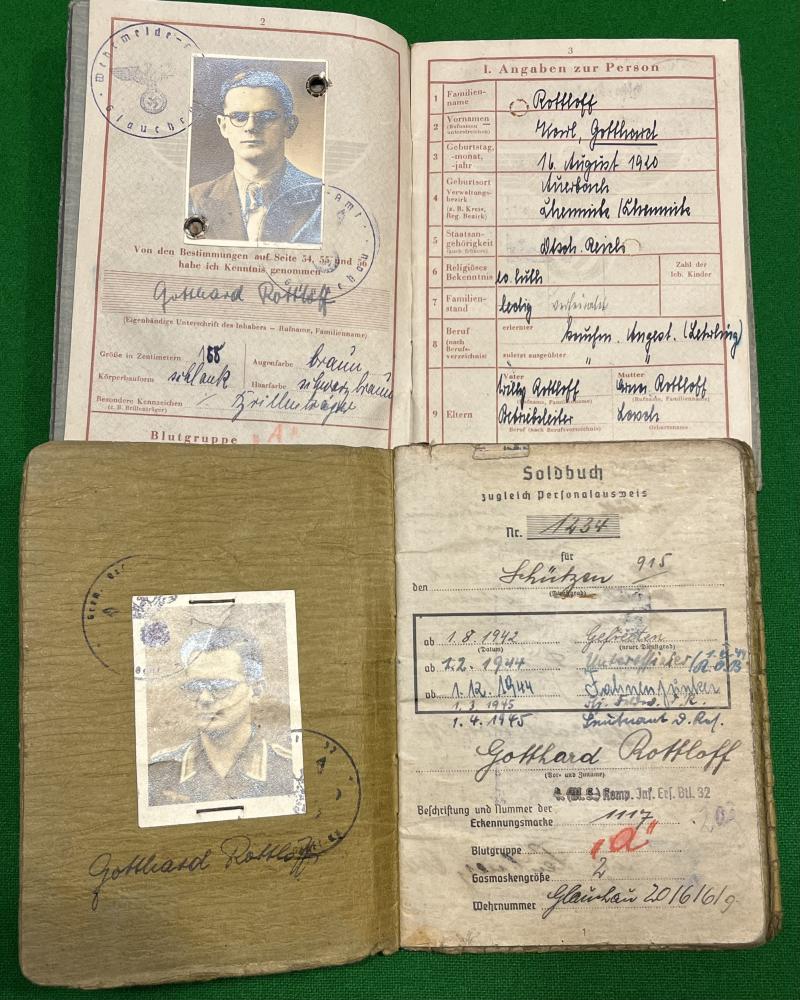 2
Glauchau
Von den Bestimmungen auf Seite 54, 55 und 56
habe ich Kenntnis genommen
Gotthard Rottloff
(Eigenhändige Unterschrift des Inhabers — Rufname, Familienname)
Größe in Zentimetern 168 Augenfarbe braun
Körperbauform schlank Haarfarbe schwarzbraun
Besondere Kennzeichen / Brillenträger
(z. B. Brillenträger)
Blutgruppe „A“
3
I. Angaben zur Person
1 Familien-
name Rottloff
2 Vornamen
(Rufnamen
unterstreichen) Karl, Gotthard
3 Geburtstag,
-monat,
-jahr 16. August 1920
4 Geburtsort Auerbach
Verwaltungs-
bezirk
(z. B. Kreis,
Reg. Bezirk) Chemnitz / Chemnitz
5 Staatsan-
gehörigkeit
(auch frühere) Dtsch. Reich
6 Religiöses
Bekenntnis ev. luth. Zahl der
leb. Kinder
7 Familien-
stand ledig verheiratet
8 Beruf
(nach
Berufs-
verzeichnis) erlernter Kaufm. Angest. (Lehrling)
zuletzt ausgeübter " "
9 Eltern Vater Mutter
Willy Rottloff Rottloff
(Rufname, Familienname) (Rufname, Familienname)
Betriebsleiter
Beruf (nach Berufsverzeichnis) Geburtsname
Soldbuch
zugleich Personalausweis
Nr. 1234
für
den Schützen 915
(Dienstgrad)
ab 1.8.1942 Gefreiten
(Datum) (neuer Dienstgrad)
ab 1.2.1944 Unteroffizier / R.O.B.
ab 1.12.1944 Fahnenjunker
1.3.1945
1.4.1945 Leutnant d. Res.
Gotthard Rottloff
(Vor- und Zuname)
Komp. Inf. Ers. Btl. 32
Beschriftung und Nummer der
Erkennungsmarke 1117
Blutgruppe „a“
Gasmaskengröße 2
Wehrnummer Glauchau 20/6/6/9
1
Gotthard Rottloff